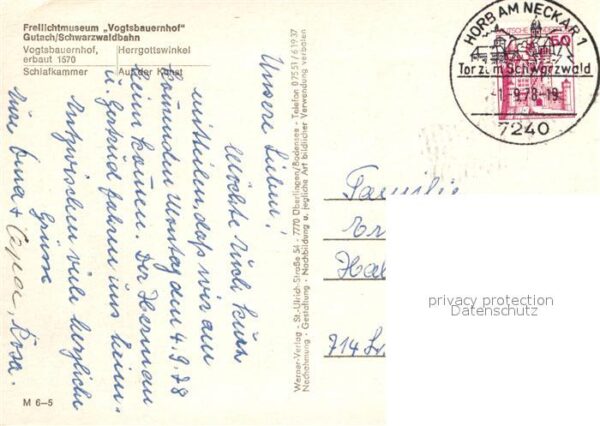 Freilichtmuseum „Vogtsbauernhof“
Gutach/Schwarzwaldbahn
Vogtsbauernhof, Herrgottswinkel
erbaut 1570
Schlafkammer Aus der Kunst
Unsere Lieben!
Möchte Euch kurz
mitteilen, daß wir am
kommenden Montag den 4.9.78
heim kommen. Der Herman
u. Gertrud fahren uns heim.
Inzwischen viele herzliche
Grüsse
eure
Rosa.
M 6-5
Werner-Verlag - St.-Ulrich-Straße 54 - 7770 Überlingen/Bodensee - Telefon 07551/61937
Nachahmung - Gestaltung - Nachbildung u. jegliche Art bildlicher Verwendung verboten
HORB AM NECKAR 1
Tor zum Schwarzwald
-1.-9.78-19
7240
50
Familie
714
privacy protection
Datenschutz